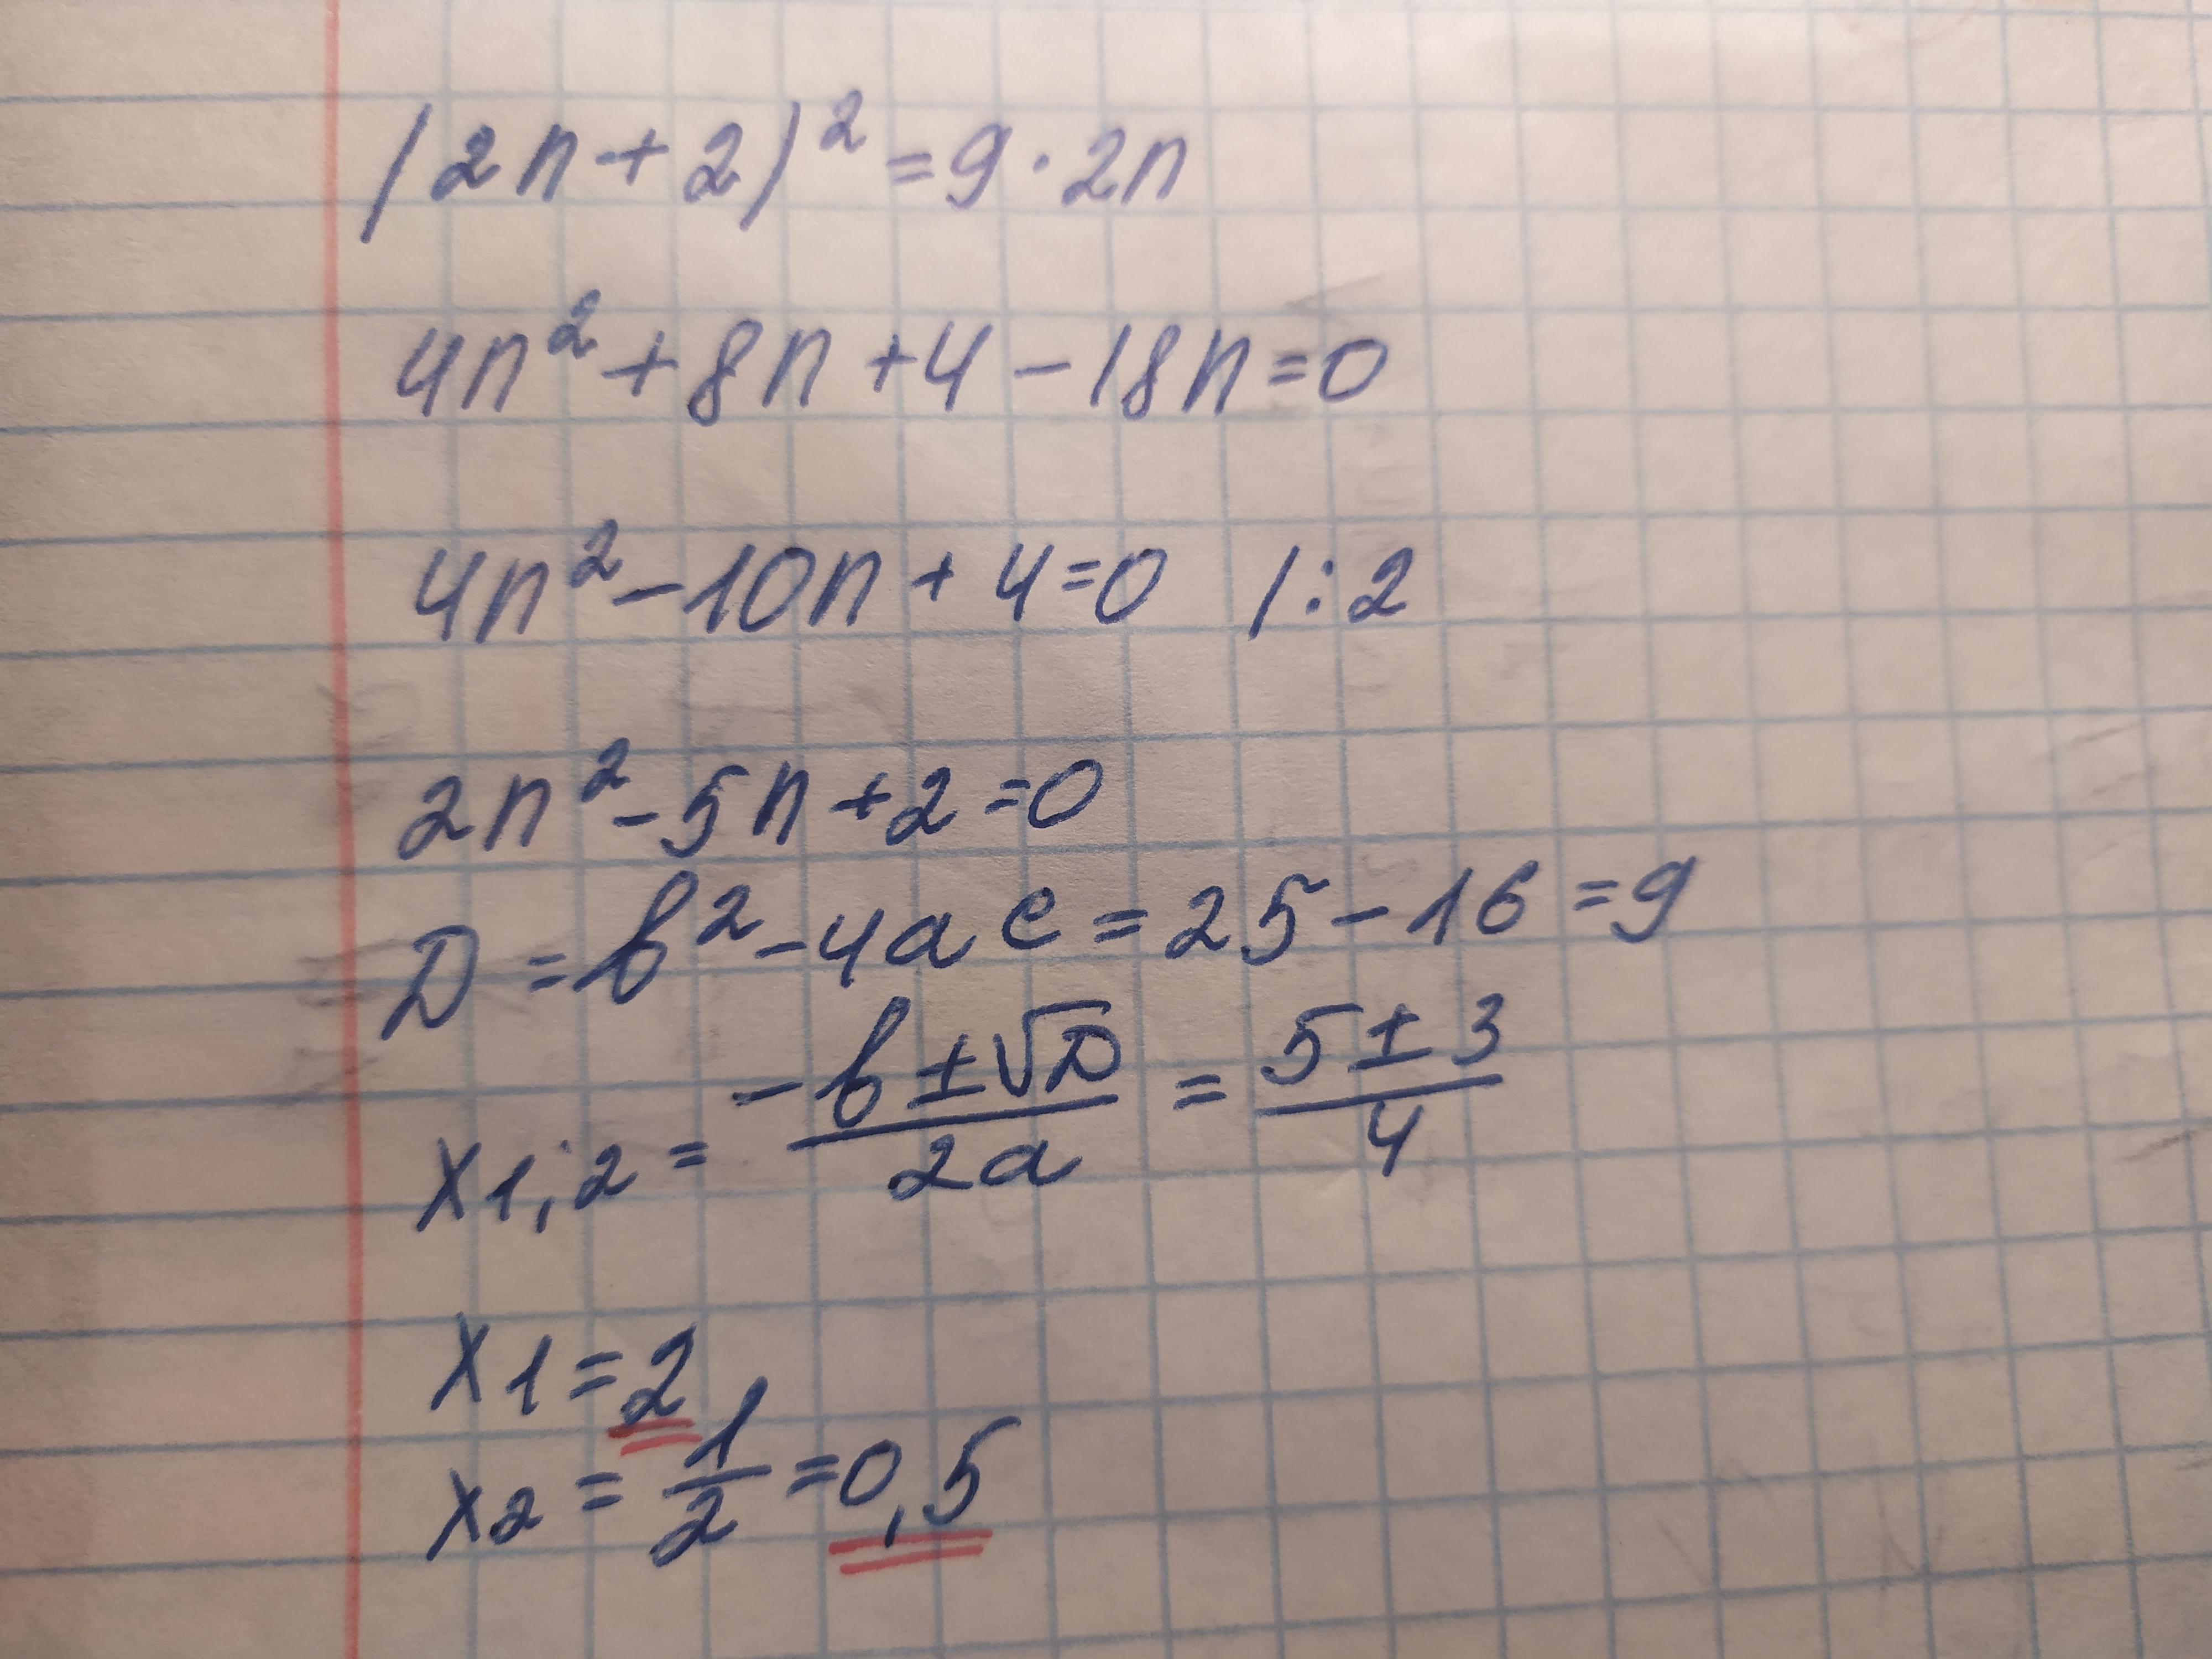 (2n+2)² = 9·2n
4n² + 8n + 4 - 18n = 0
4n² - 10n + 4 = 0 /:2
2n² - 5n + 2 = 0
D = b² - 4ac = 25 - 16 = 9
x1;2 = (-b ± √D)/(2a) = (5 ± 3)/4
x1 = 2
x2 = 1/2 = 0,5